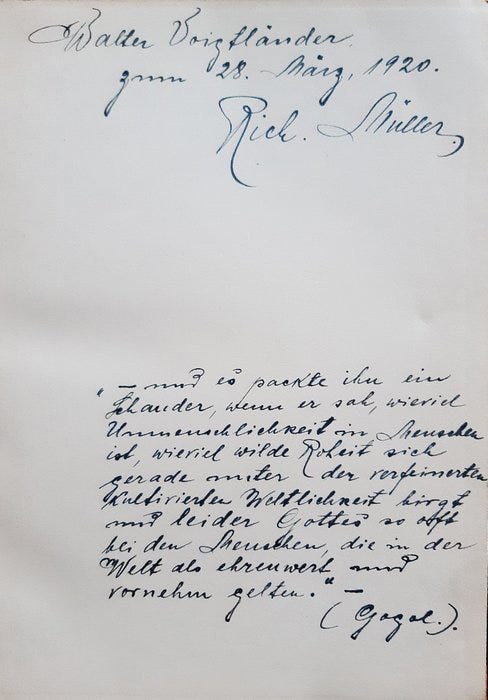 Walter Voigtländer.
zum 28. März, 1920.
Rich. Müller.
„— und es packte ihn ein
Schauder, wenn er sah, wieviel
Unmenschlichkeit in Menschen
ist, wieviel wilde Roheit sich
gerade unter der verfeinerten
kultivierten Weltlichkeit birgt
und leider Gottes so oft
bei den Menschen, die in der
Welt als ehrenwert und
vornehm gelten.“ —
(Gogol.).